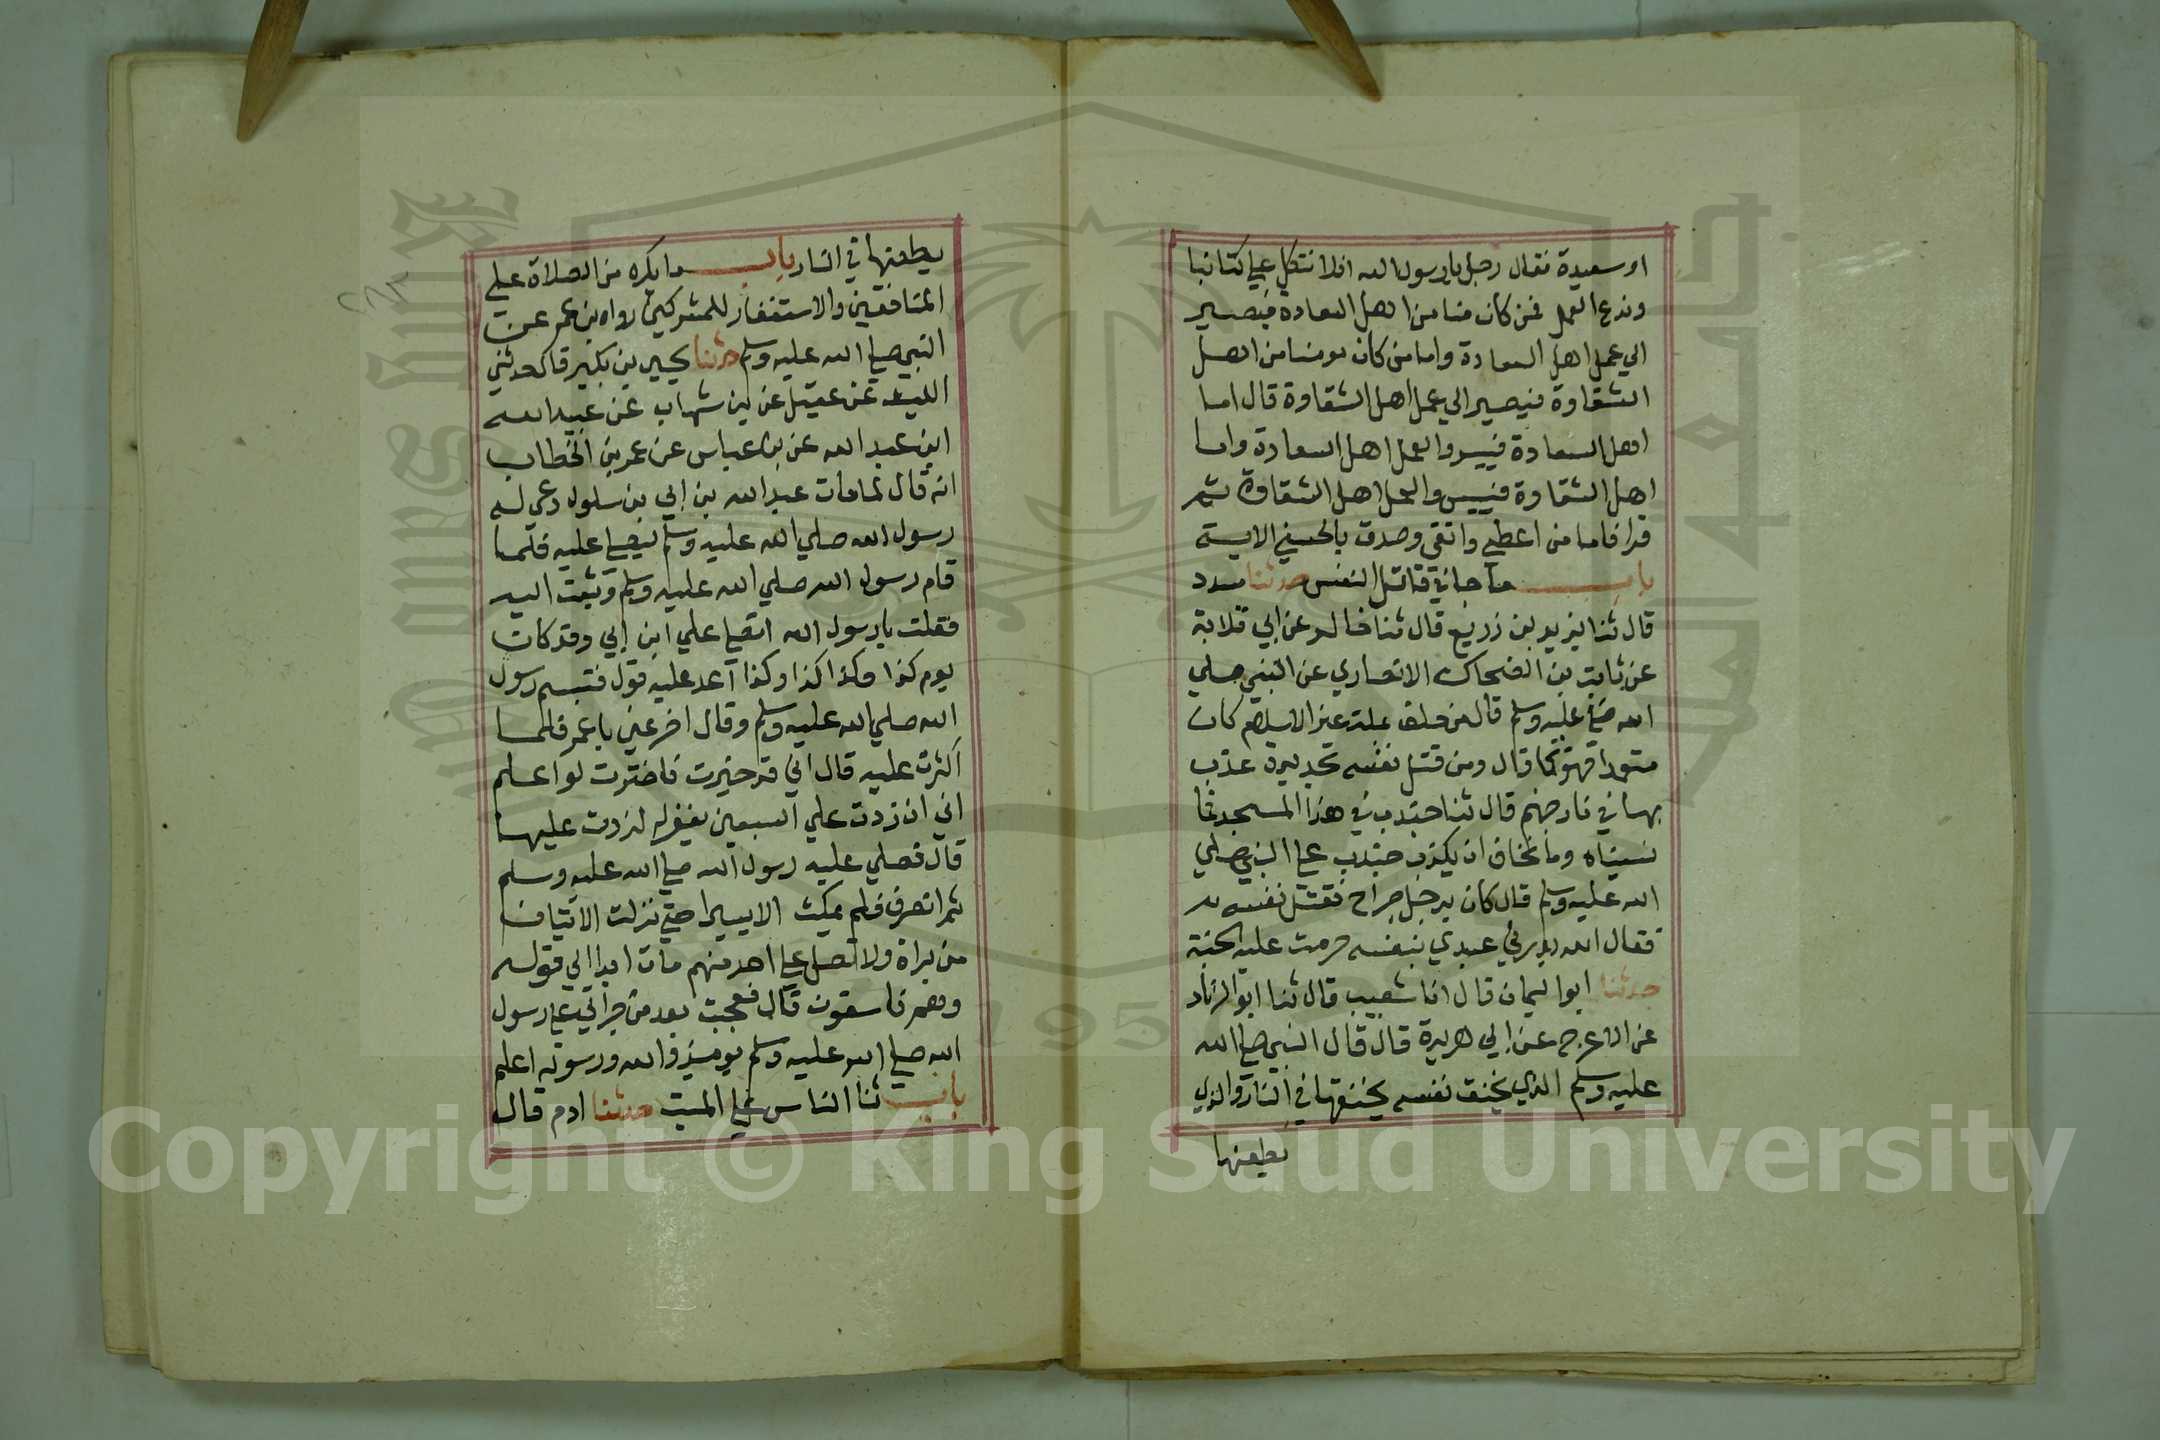 او سعيدة فقال رجل يا رسول الله افلا نتكل علي كتابنا
وندع العمل فمن كان منا من اهل السعادة فيصير
الي عمل اهل السعادة واما من كان منا من اهل
الشقاوة فيصير الي عمل اهل الشقاوة قال اما
اهل السعادة فييسروا لعمل اهل السعادة واما
اهل الشقاوة فييسروا لعمل اهل الشقاوة ثم
قرا فاما من اعطي واتقي وصدق بالحسني الاية
باب ما جا في قاتل النفس حدثنا مسدد
قال ثنا يزيد بن زريع قال ثنا خالد عن ابي قلابة
عن ثابت بن الضحاك الانصاري عن النبي صلي
الله عليه وسلم قال من حلف بملة غير الاسلام كان
متعمدا فهو كما قال ومن قتل نفسه بحديدة عذب
بها في نار جهنم قال ثنا جندب في هذا المسجد فما
نسيناه وما نخاف ان يكذب جندب علي النبي صلي
الله عليه وسلم قال كان برجل جراح فقتل نفسه
فقال الله بدرني عبدي بنفسه حرمت عليه الجنة
حدثنا ابو اليمان قال انا شعيب قال ثنا ابو الزناد
عن الاعرج عن ابي هريرة قال قال النبي صلي الله
عليه وسلم الذي يخنق نفسه يخنقها في النار والذي
يطعنها
يطعنها في النار باب ما يكره من الصلاة علي
المنافقين والاستغفار للمشركين رواه بن عمر عن
النبي صلي الله عليه وسلم حدثنا يحيي بن بكير قال حدثني
الليث عن عقيل عن بن شهاب عن عبيد الله
ابن عبد الله عن بن عباس عن عمر بن الخطاب
انه قال لما مات عبد الله بن ابي بن سلول دعي له
رسول الله صلي الله عليه وسلم ليصلي عليه فلما
قام رسول الله صلي الله عليه وسلم وثبت اليه
فقلت يا رسول الله اتصلي علي ابن ابي وقد كان
يوم كذا وكذا كذا وكذا اعد عليه قول فتبسم رسول
الله صلي الله عليه وسلم وقال اخر عني يا عمر فلما
اكثرت عليه قال اني قد خيرت فاخترت لو اعلم
اني ان زدت علي السبعين يغفر له لزدت عليها
قال فصلي عليه رسول الله صلي الله عليه وسلم
ثم انصرف فلم يمكث الا يسيرا حتي نزلت الايتان
من براة ولا تصل علي احد منهم مات ابدا الي قوله
وهم فاسقون قال فعجبت بعد من جراتي علي رسول
الله صلي الله عليه وسلم يوميذ والله ورسوله اعلم
باب ثنا الناس علي الميت حدثنا ادم قال
Copyright © King Saud University
1957